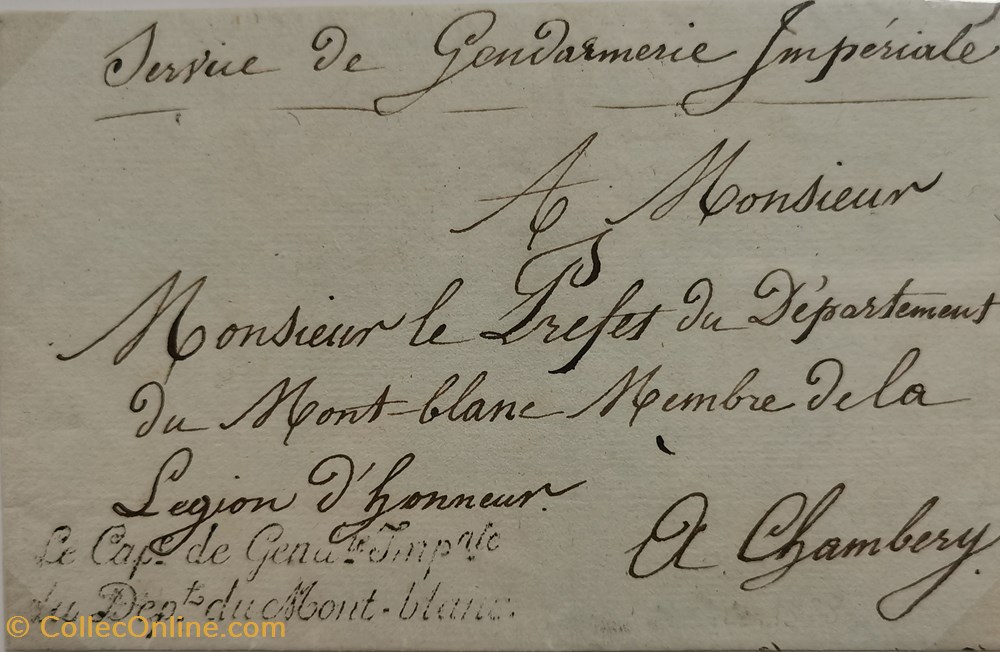 Service de Gendarmerie Impériale
A Monsieur
Monsieur le Prefet du Département
du Mont-blanc Membre de la
Legion d'honneur.
à Chambery.
Le Cap.e de Gend.rie Imp.ale
du Dép.t du Mont-blanc.
© CollecOnline.com